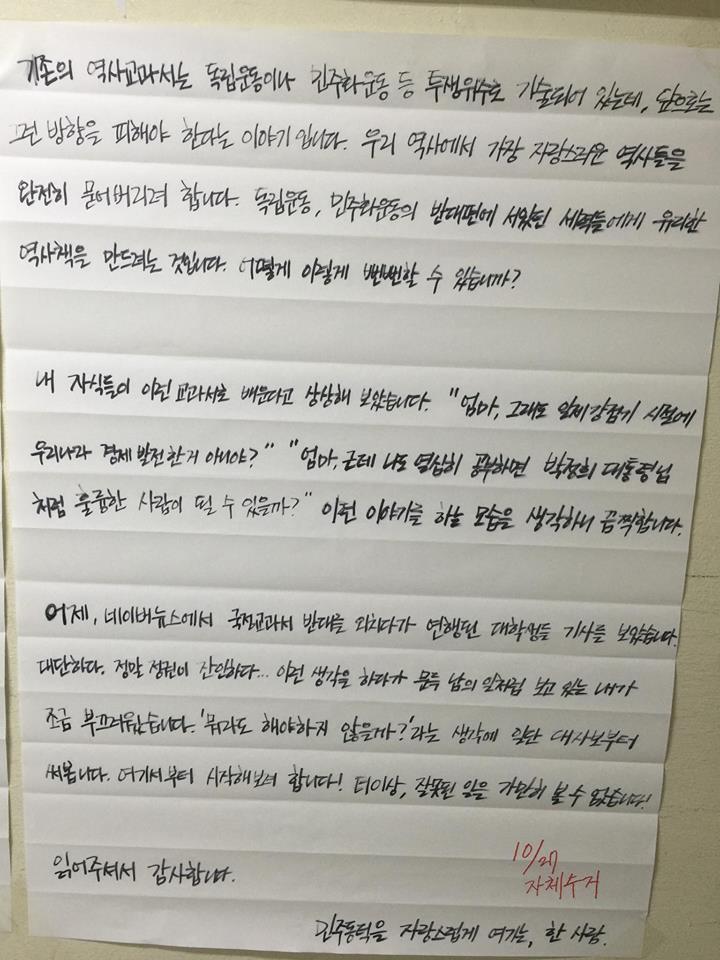 기존의 역사교과서는 독립운동이나 민주화운동 등 투쟁위주로 기술되어 있는데, 앞으로는
그런 방향을 피해야 한다는 이야기입니다. 우리 역사에서 가장 자랑스러운 역사들을
완전히 묻어버리려 합니다. 독립운동, 민주화운동의 반대편에 서있던 세력들에게 유리한
역사책을 만드려는 것입니다. 어떻게 이렇게 뻔뻔할 수 있습니까?
내 자식들이 이런 교과서로 배운다고 상상해 보았습니다. "엄마, 그래도 일제강점기 시절에
우리나라 경제 발전한거 아니야?" "엄마, 근데 나도 열심히 공부하면 박정희 대통령님
처럼 훌륭한 사람이 될 수 있을까?" 이런 이야기를 하는 모습을 생각하니 끔찍합니다.
어제, 네이버뉴스에서 국정교과서 반대를 외치다가 연행된 대학생들 기사를 보았습니다.
대단하다. 정말 정권이 잔인하다... 이런 생각을 하다가 문득 남의 일처럼 보고 있는 내가
조금 부끄러웠습니다. '뭐라도 해야하지 않을까?'라는 생각에 일단 대자보부터
써봅니다. 여기서부터 시작해보려 합니다! 더이상, 잘못된 일을 가만히 볼 수 없습니다!
읽어주셔서 감사합니다.
10/27
자체수거
민주동덕을 자랑스럽게 여기는, 한 사람.